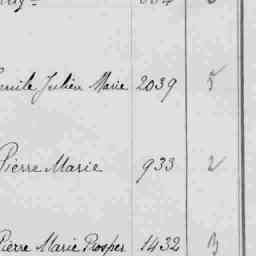 Julien Marie 2039 5
Pierre Marie 933 2
Pierre Marie Prosper 1432 B